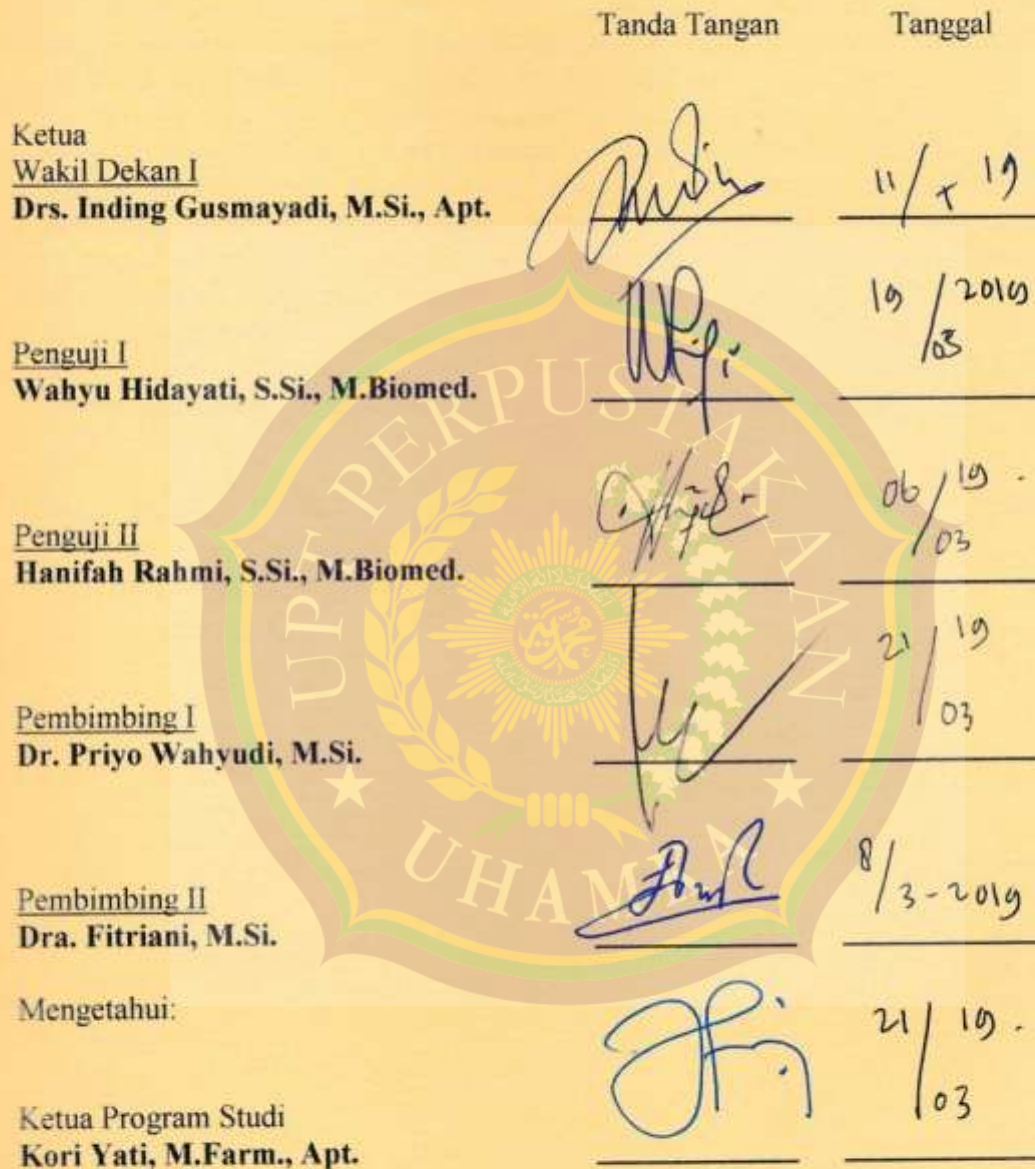 Tanda Tangan Tanggal
Ketua
Wakil Dekan I
Drs. Inding Gusmayadi, M.Si., Apt.
11/ 19
19 /2019
/03
Penguji I
Wahyu Hidayati, S.Si., M.Biomed.
06/19 .
/03
Penguji II
Hanifah Rahmi, S.Si., M.Biomed.
21/19
/03
Pembimbing I
Dr. Priyo Wahyudi, M.Si.
8/3-2019
Pembimbing II
Dra. Fitriani, M.Si.
Mengetahui:
21/19 .
/03
Ketua Program Studi
Kori Yati, M.Farm., Apt.
UPT PERPUSTAKAAN
UHAMKA